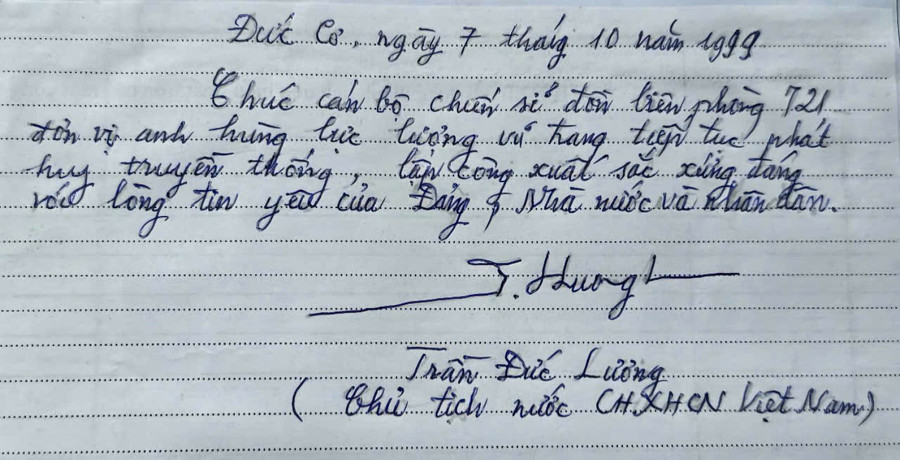 Đức Cơ, ngày 7 tháng 10 năm 1999
Chúc cán bộ chiến sĩ đồn biên phòng 721
đơn vị anh hùng lực lượng vũ trang tiếp tục phát
huy truyền thống, lập công xuất sắc xứng đáng
với lòng tin yêu của Đảng, Nhà nước và nhân dân.
Trần Đức Lương
(Chủ tịch nước CH.XHCN Việt Nam)